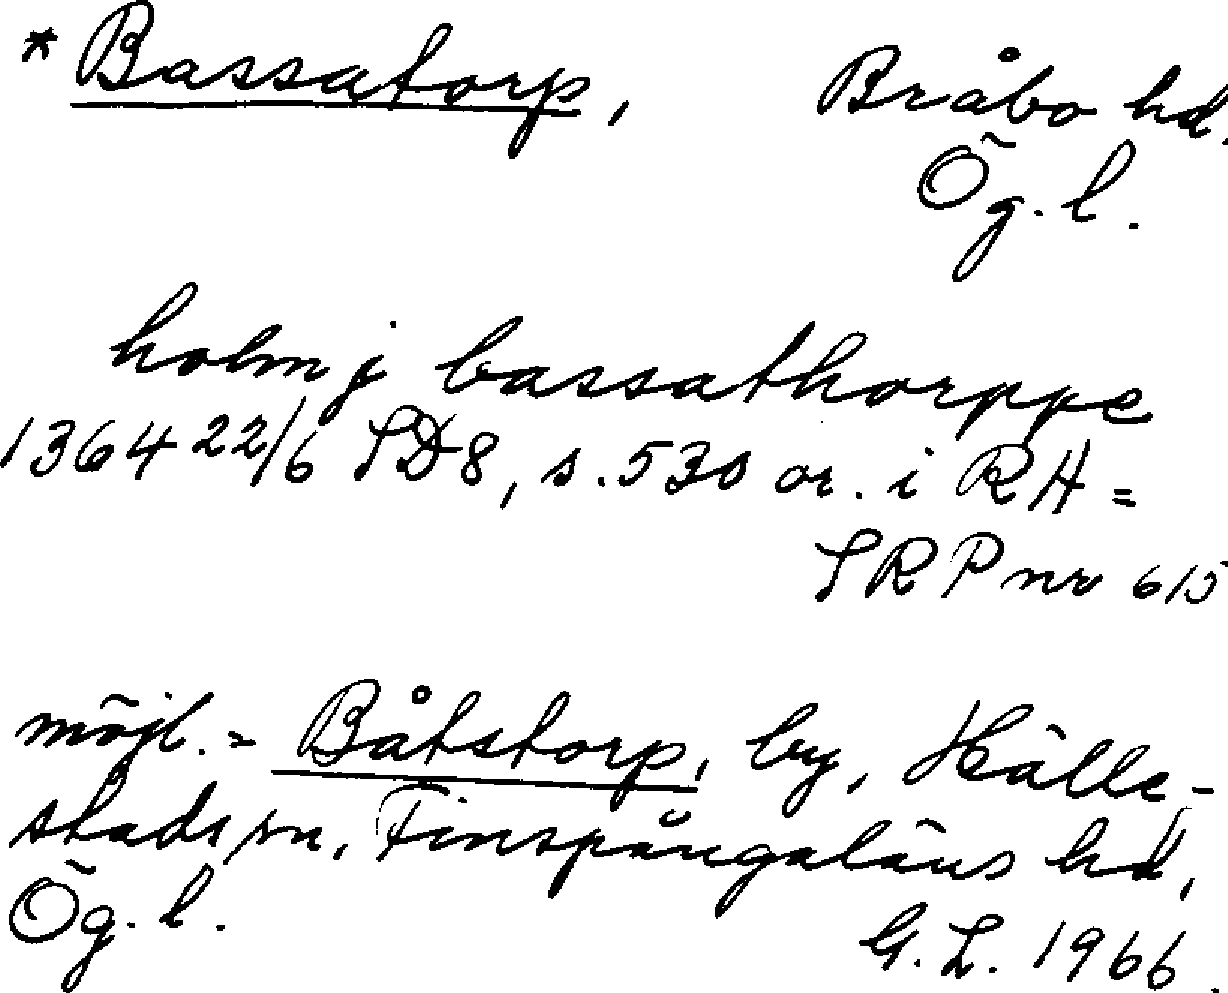 * Bassatorp, Bråbo hd.
Ög. l.
holm j bassathorppe
1364 22/6 SD8, s. 530 or. i RH =
SRP nr 615
möjl. = Båtstorp, by, Hälle-
stads sn, Finspångaläns hd,
Ög. l.
G. L. 1966.